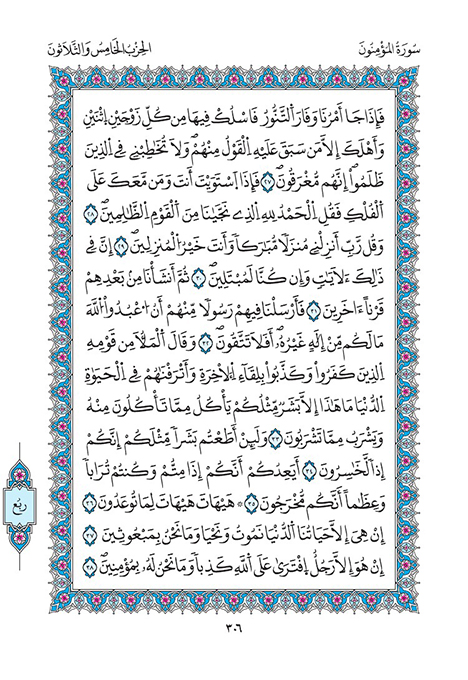 سُورَةُ المُؤْمِنُونَ
الحِزْبُ الخَامِسُ وَالثَّلَاثُونَ
فَإِذَا جَا أَمْرُنَا وَفَارَ اَلتَّنُّورُ فَاسْلُكْ فِيهَا مِن كُلِّ زَوْجَيْنِ اِثْنَيْنِ
وَأَهْلَكَ إِلَّا مَن سَبَقَ عَلَيْهِ اِلْقَوْلُ مِنْهُمْ وَلَا تُخَٰطِبْنِے فِے اِلذِينَ
ظَلَمُواْ إِنَّهُم مُّغْرَقُونَ ٢٧ فَإِذَا اَسْتَوَيْتَ أَنتَ وَمَن مَّعَكَ عَلَى
اَلْفُلْكِ فَقُلِ اِلْحَمْدُ لِلهِ اِلذِے نَجَّيٰنَا مِنَ اَلْقَوْمِ اِلظَّٰلِمِينَ ٢٨
وَقُل رَّبِّ أَنزِلْنِے مُنزَلاً مُّبَٰرَكاً وَأَنتَ خَيْرُ اُلْمُنزِلِينَ ٢٩ إِنَّ فِے
ذَٰلِكَ لَأٓيَٰتٍ وَإِن كُنَّا لَمُبْتَلِينَ ٣٠ ثُمَّ أَنشَأْنَا مِنۢ بَعْدِهِمْ
قَرْناً ءَاخَرِينَ ٣١ فَأَرْسَلْنَا فِيهِمْ رَسُولاً مِّنْهُمْ أَنُ اُعْبُدُواْ اُللَّهَ
مَا لَكُم مِّنِ إِلَٰهٍ غَيْرُهُۥ أَفَلَا تَتَّقُونَ ٣٢ وَقَالَ اَلْمَلَأُ مِن قَوْمِهِ
اِلذِينَ كَفَرُواْ وَكَذَّبُواْ بِلِقَآءِ اِلْأٓخِرَةِ وَأَتْرَفْنَٰهُمْ فِے اِلْحَيَوٰةِ
اِلدُّنْيَا مَا هَٰذَا إِلَّا بَشَرٌ مِّثْلُكُمْ يَأْكُلُ مِمَّا تَأْكُلُونَ مِنْهُ
وَيَشْرَبُ مِمَّا تَشْرَبُونَ ٣٣ وَلَئِنْ أَطَعْتُم بَشَراً مِّثْلَكُمْ إِنَّكُمْ
إِذاً لَّخَٰسِرُونَ ٣٤ أَيَعِدُكُمْ أَنَّكُمْ إِذَا مِتُّمْ وَكُنتُمْ تُرَاباً
وَعِظَٰماً أَنَّكُم مُّخْرَجُونَ ٣٥ ۞ هَيْهَاتَ هَيْهَاتَ لِمَا تُوعَدُونَ ٣٦
إِنْ هِيَ إِلَّا حَيَاتُنَا اَلدُّنْيَا نَمُوتُ وَنَحْيَا وَمَا نَحْنُ بِمَبْعُوثِينَ ٣٧
إِنْ هُوَ إِلَّا رَجُلٌ اِفْتَرَىٰ عَلَى اَللَّهِ كَذِباً وَمَا نَحْنُ لَهُۥ بِمُؤْمِنِينَ ٣٨
ربع
٣٠٦